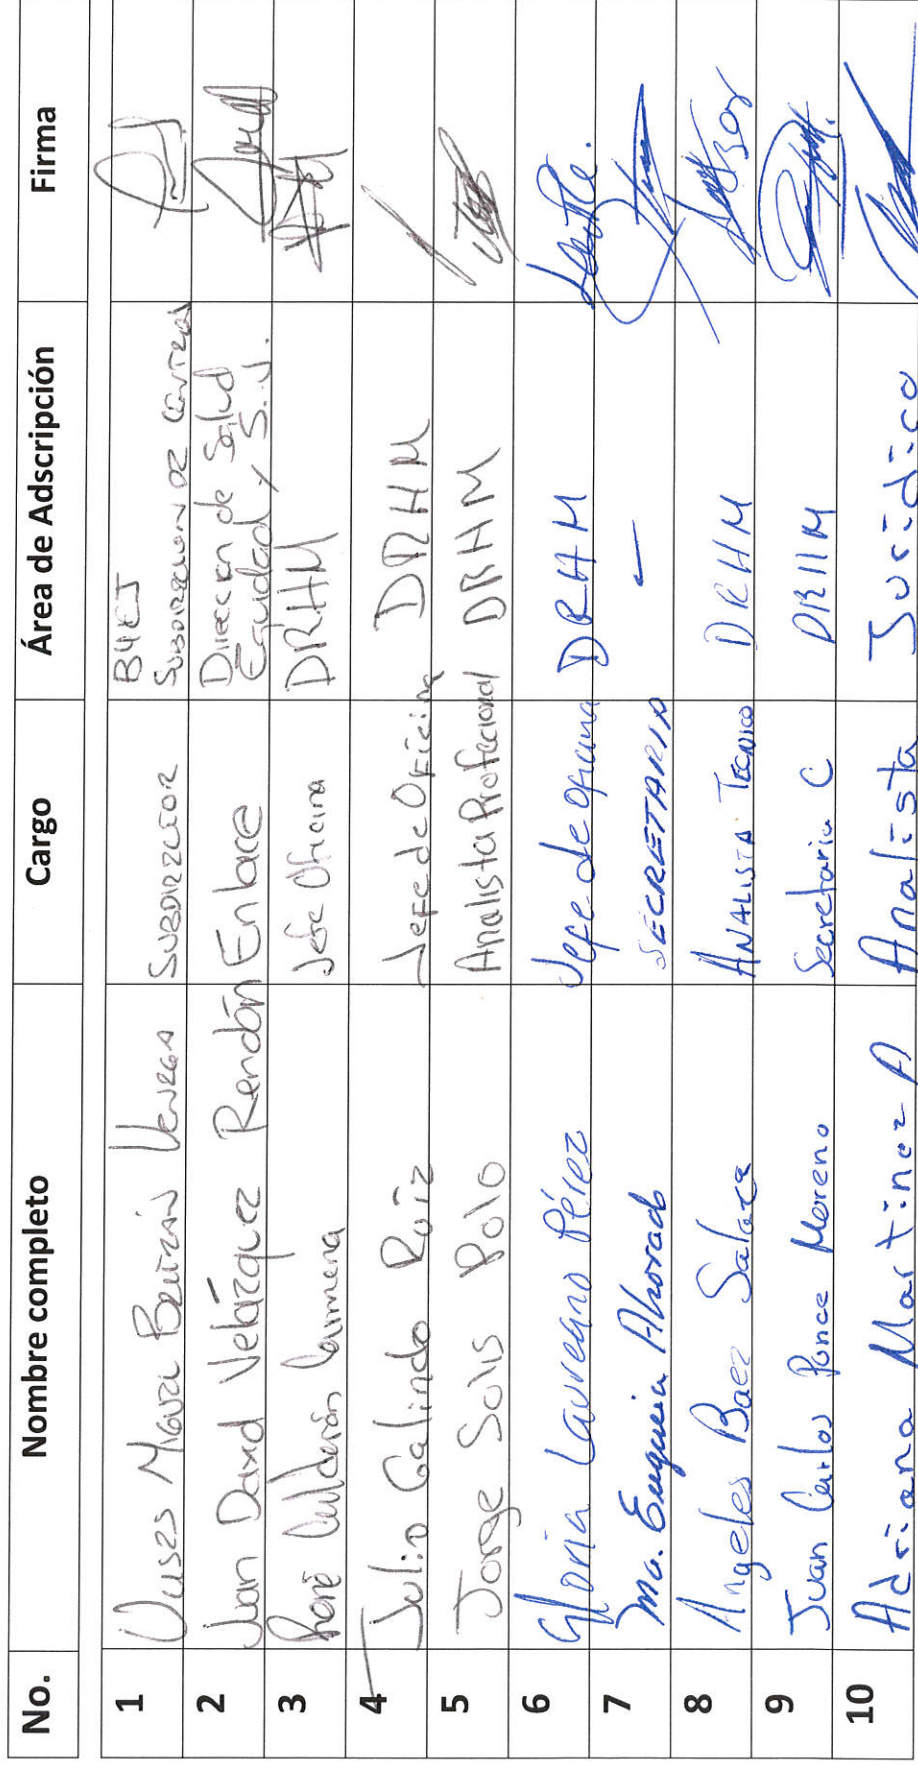 No. Nombre completo Cargo Área de Adscripción Firma
1 Ulises Miguel Beltrán Venegas SUBDIRECTOR BYEJ
SUBDIRECCION DE CONTROL
2 Juan David Velázquez Rendón Enlace Dirección de Salud
Equidad y S.J.
3 René Calderón Jefe Oficina DRHM
4 Julio Galindo Ruíz Jefe de Oficina DRHM
5 Jorge Solis Polo Analista Profecional DRHM
6 Gloria Laureano Pérez Jefe de Oficina DRHM
7 Ma. Eugenia Alvorado SECRETARIA —
8 Angeles Baez ANALISTA Tecnico DRHM
9 Juan Carlos Ponce Moreno Secretario C DRHM
10 Adriana Martinez A Analista Juridico